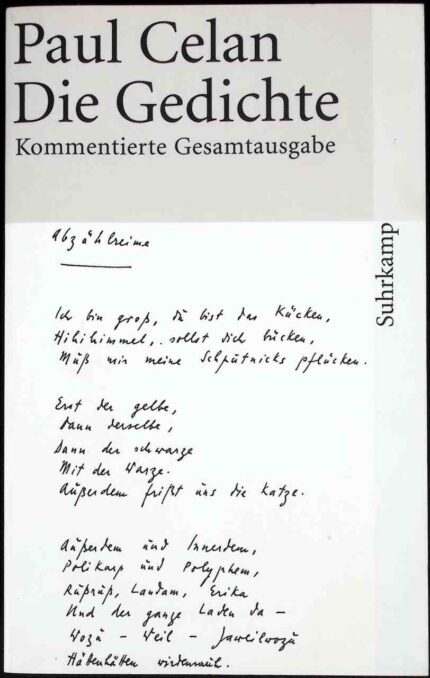 Paul Celan
Die Gedichte
Kommentierte Gesamtausgabe
Suhrkamp
Abzählreime
Ich bin groß, du bist das Kücken,
Hihihimmel, sollst dich bücken,
Muß mir meine Schputnicks pflücken.
Erst der gelbe,
Dann derselbe,
Dann der schwarze
Mit der Warze.
Außerdem frißt uns die Katze.
Außerdem und Innerdem,
Polikarp und Polyphem,
Rußruß, Landam, Erika
Und der ganze Laden da –
Wozu – Weil – Jaweilwozu
Hättenhätten